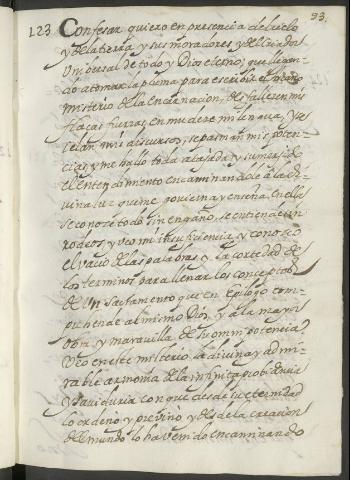 93.
123 Confesar quiero en presencia del cielo
y de la tierra y sus moradores y del Criador
Universal de todo y Dios eterno, que llegan
do a tomar la pluma para escribir el
misterio de la encarnacion, desfallecen mis
flacas fuerzas enmudece mi lengua, y se
yelan mis discursos, se pasman mis poten
cias y me hallo toda atajada y sumersa
el entendimiento encaminandole a la di
vina luz que me govierna y enseña. En ella
se conoce todo sin engaño, se entiende sin
rodeos, y veo mi insuficiencia y conosco
el vacio de las palabras y la cortedad de
los terminos para llenar los conceptos
de Un Sacramento que en Epilogo com
prehende al mismo Dios y a la mayor
obra y maravilla de su omnipotencia
Veo en este misterio la divina y admi
rable armonia de la infinita probidencia
y saviduria con que desde su eternidad
lo ordeno y previno y desde la creacion
del mundo lo ha venido encaminando